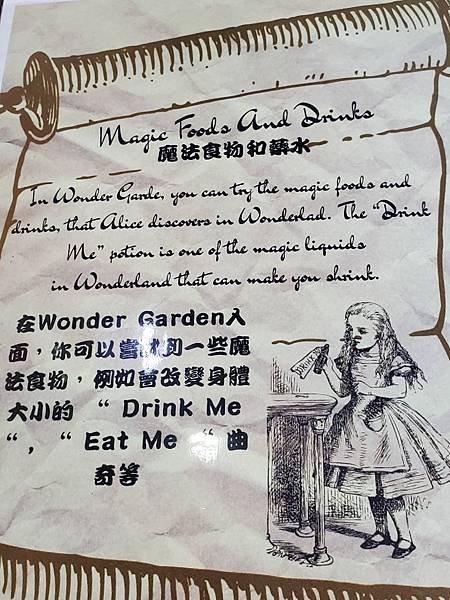 Magic Foods And Drinks
魔法食物和藥水
In Wonder Garde, you can try the magic foods and
drinks, that Alice discovers in Wonderlad. The "Drink
Me" potion is one of the magic liquids
in Wonderland that can make you shrink.
在Wonder Garden入
面，你可以嘗試到一些魔
法食物，例如會改變身體
大小的 “ Drink Me
“ , “ Eat Me “ 曲
奇等